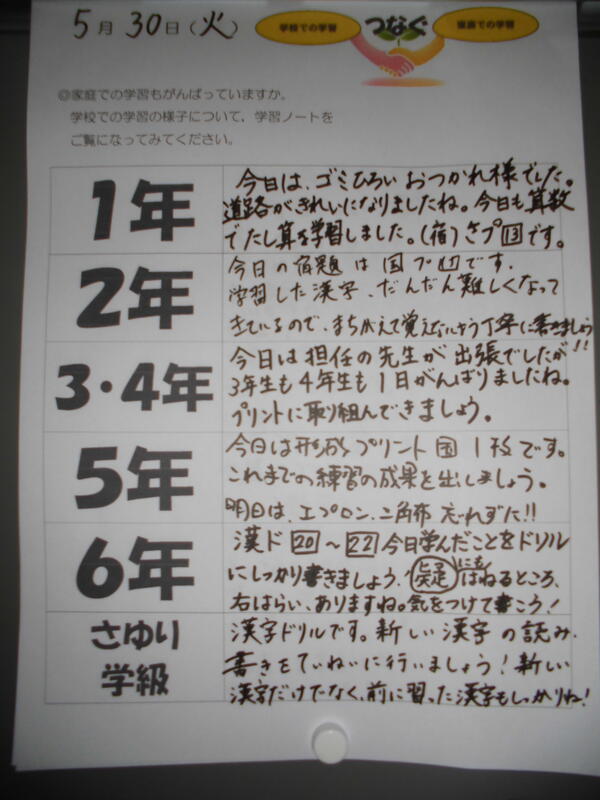 5月30日(火)
学校での学習 つなぐ 家庭での学習
◎家庭での学習もがんばっていますか。
学校での学習の様子について、学習ノートを
ご覧になってみてください。
1年
今日は、ゴミひろい おつかれ様でした。
道路がきれいになりましたね。今日も算数
でたし算を学習しました。(宿)さプ13です。
2年
今日の宿題は国プ切です。
学習した漢字、だんだん難しくなって
きているので、まちがえて覚えないよう丁寧に書きましょう!!
3・4年
今日は担任の先生が出張でしたが
3年生も4年生も1日がんばりましたね。
プリントに取り組んできましょう。
5年
今日は形成プリント国1枚です。
これまでの練習の成果を出しましょう。
明日は、エプロン、三角布 忘れずに!!
6年
漢ド20〜22 今日学んだことをドリル
にしっかり書きましょう。疑にもはねるところ、
右はらい、ありますね。気をつけて書こう!
さゆり
学級
漢字ドリルです。新しい漢字の読み、
書きをていねいに行いましょう!新しい
漢字だけでなく、前に習った漢字もしっかりね!